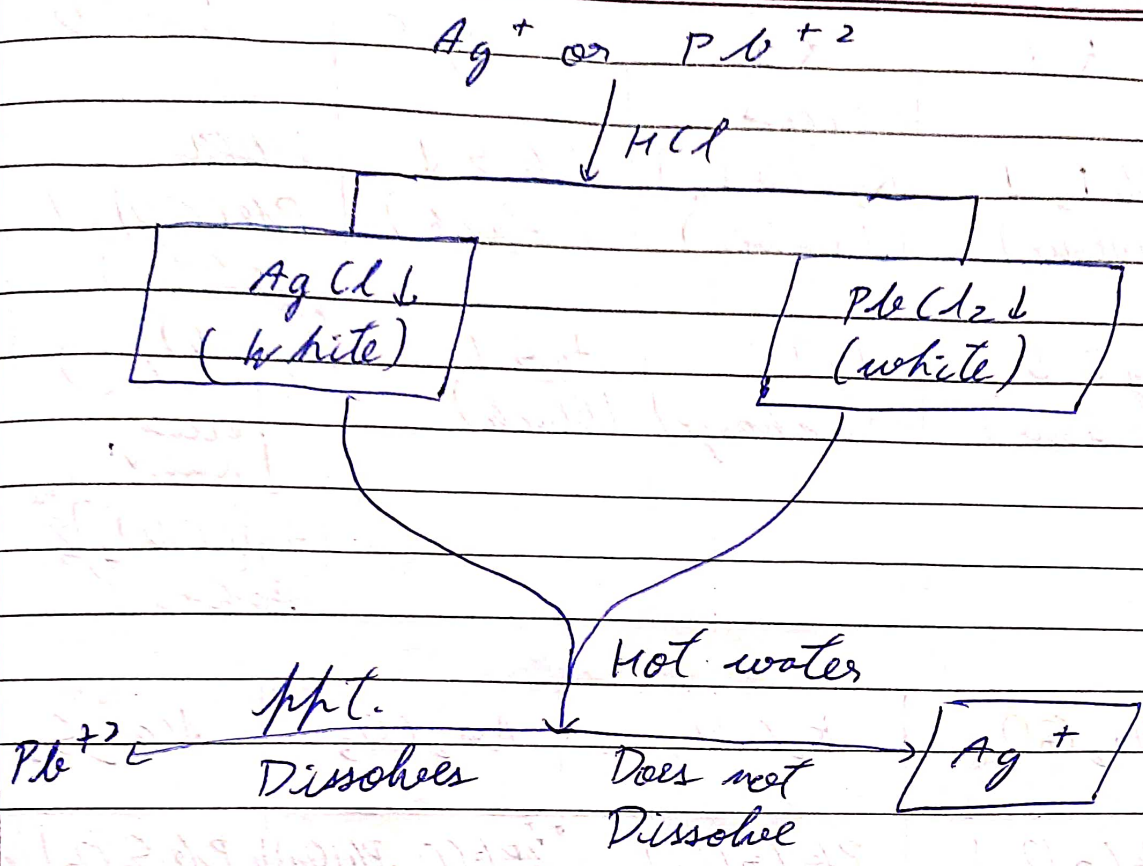 Ag⁺ or Pb⁺²
HCl
AgCl↓
(White)
PbCl₂↓
(white)
Hot water
ppt.
Pb⁺²
Dissolves
Does not
Dissolve
Ag⁺